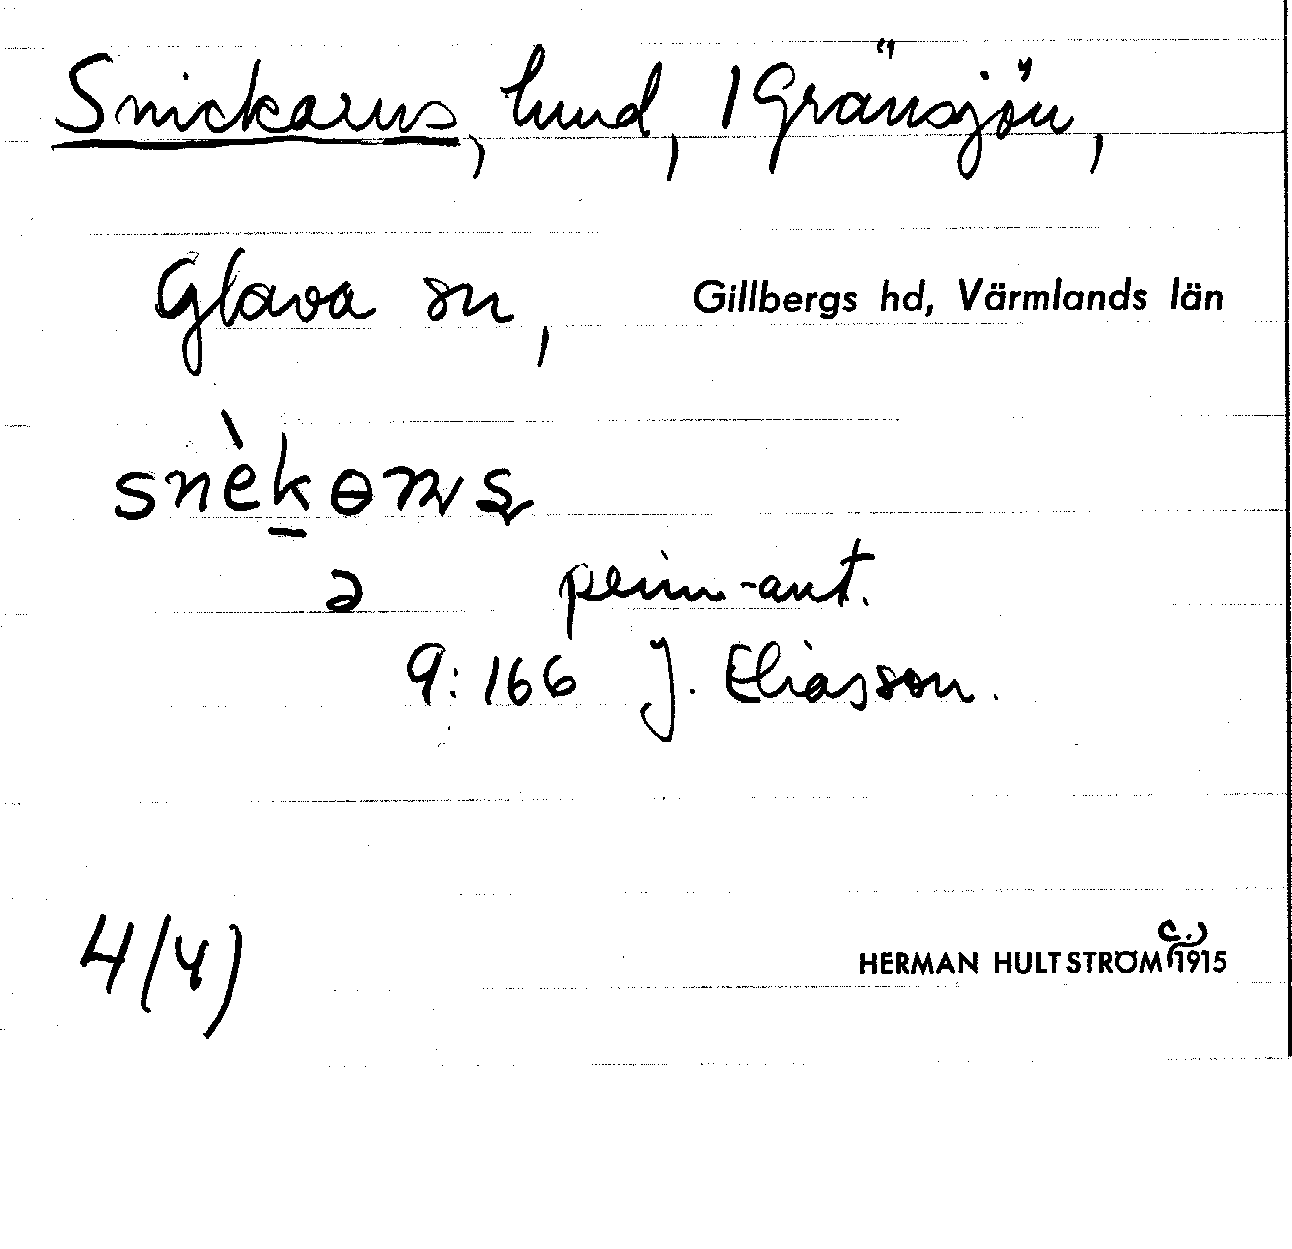 Snickarns, lund, 1 Gränsjön,
Glava sn, Gillbergs hd, Värmlands län
snèkɵns
ə penn-ant.
9:166 J. Eliasson.
4(4) HERMAN HULTSTRÖM (1915